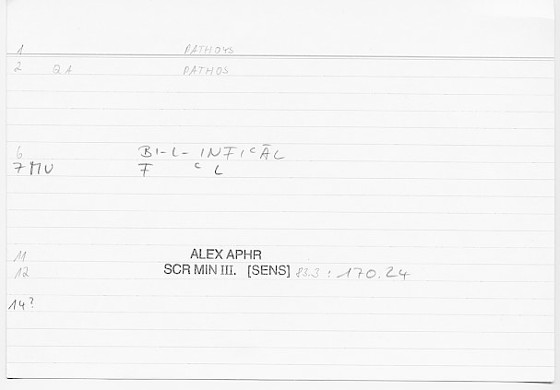 1 PATHOYS
2 QA PATHOS
6 BI-L-INFICĀL
7 MU F C L
11 ALEX APHR
12 SCR MIN III. [SENS] 83.3 : 170.24
14?